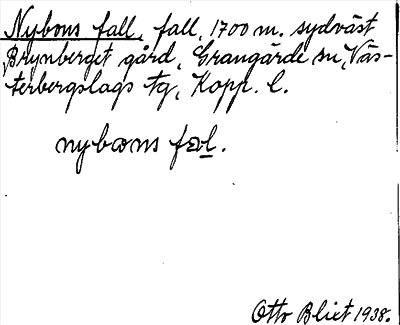 Nybons fall, fall, 1700 m. sydväst
Brynberget gård, Grangärde sn, Väs-
terbergslags tg, Kopp. l.
nybωns fαl.
Otto Blixt 1938.